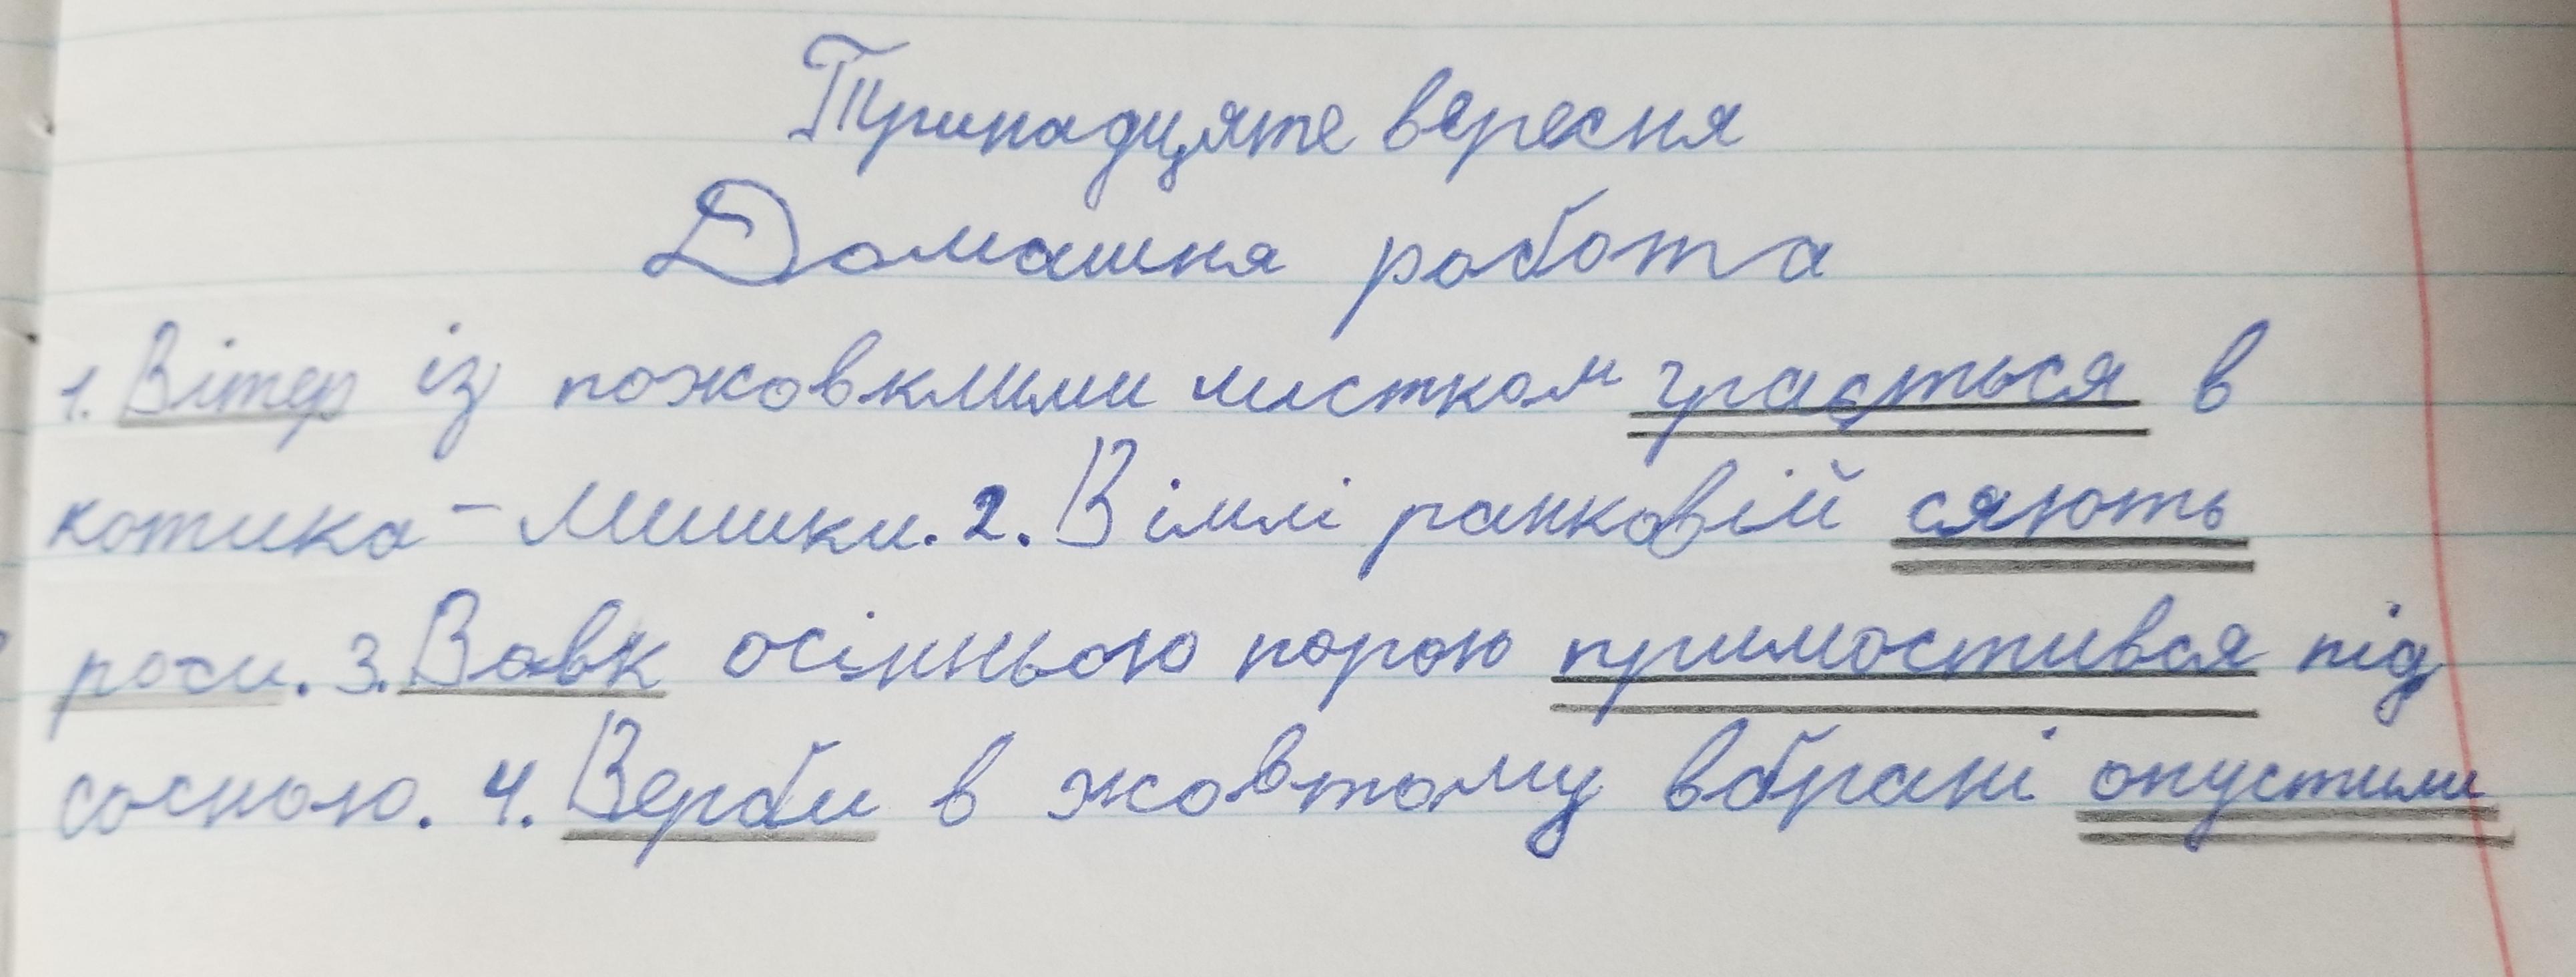 Тринадцяте вересня
Домашня робота
1. Вітер із пожовклими листком грається в
котика - Мишки. 2. В імлі ранковій сяють
роси. 3. Вовк осінньою порою примостився під
сосною. 4. Верби в жовтому вбрані опустили